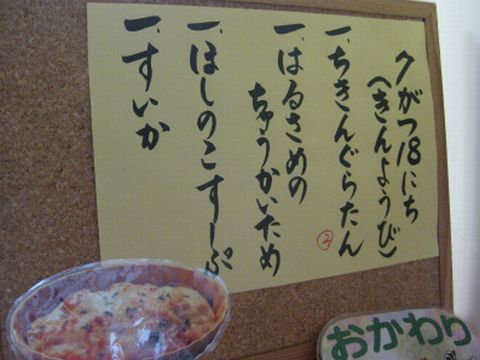 7がつ18にち
(きんようび)
一、ちきんぐらたん
2
一、はるさめの
ちゅうかいため
一、ほしのこすーぷ
一、すいか
おかわり